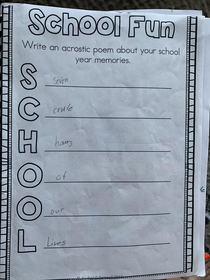 School Fun
Write an acrostic poem about your school
year memories.
S seven
C cruile
H hours
O of
O our
L Lives